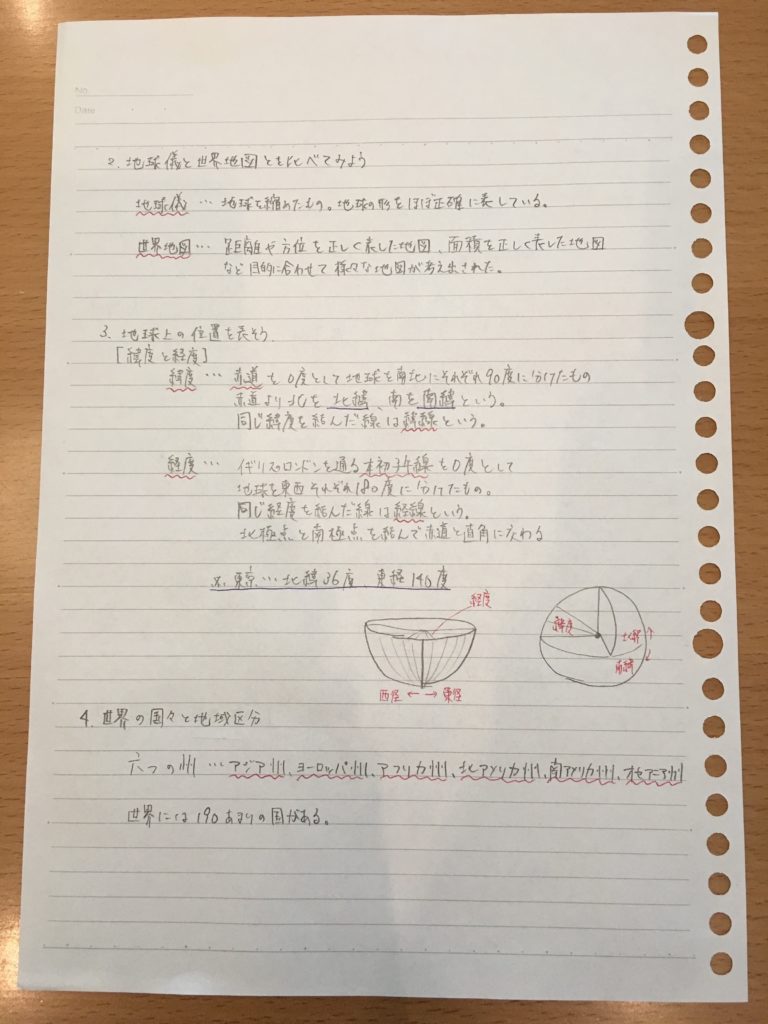 No.
Date
2. 地球儀と世界地図とを比べてみよう
地球儀 … 地球を縮めたもの。地球の形をほぼ正確に表している。
世界地図 … 距離や方位を正しく表した地図、面積を正しく表した地図
など目的に合わせて様々な地図が考え出された。
3. 地球上の位置を表そう
[緯度と経度]
緯度 … 赤道を0度として地球を南北にそれぞれ90度に分けたもの
赤道より北を北緯、南を南緯という。
同じ緯度を結んだ線は緯線という。
経度 … イギリスのロンドンを通る本初子午線を0度として
地球を東西それぞれ180度に分けたもの。
同じ経度を結んだ線は経線という。
北極点と南極点を結んで赤道と直角に交わる
※. 東京 … 北緯36度、東経140度
経度
西経 ← → 東経
緯度
北緯 ↑
南緯 ↓
4. 世界の国々と地域区分
六つの州 … アジア州、ヨーロッパ州、アフリカ州、北アメリカ州、南アメリカ州、オセアニア州
世界には190あまりの国がある。